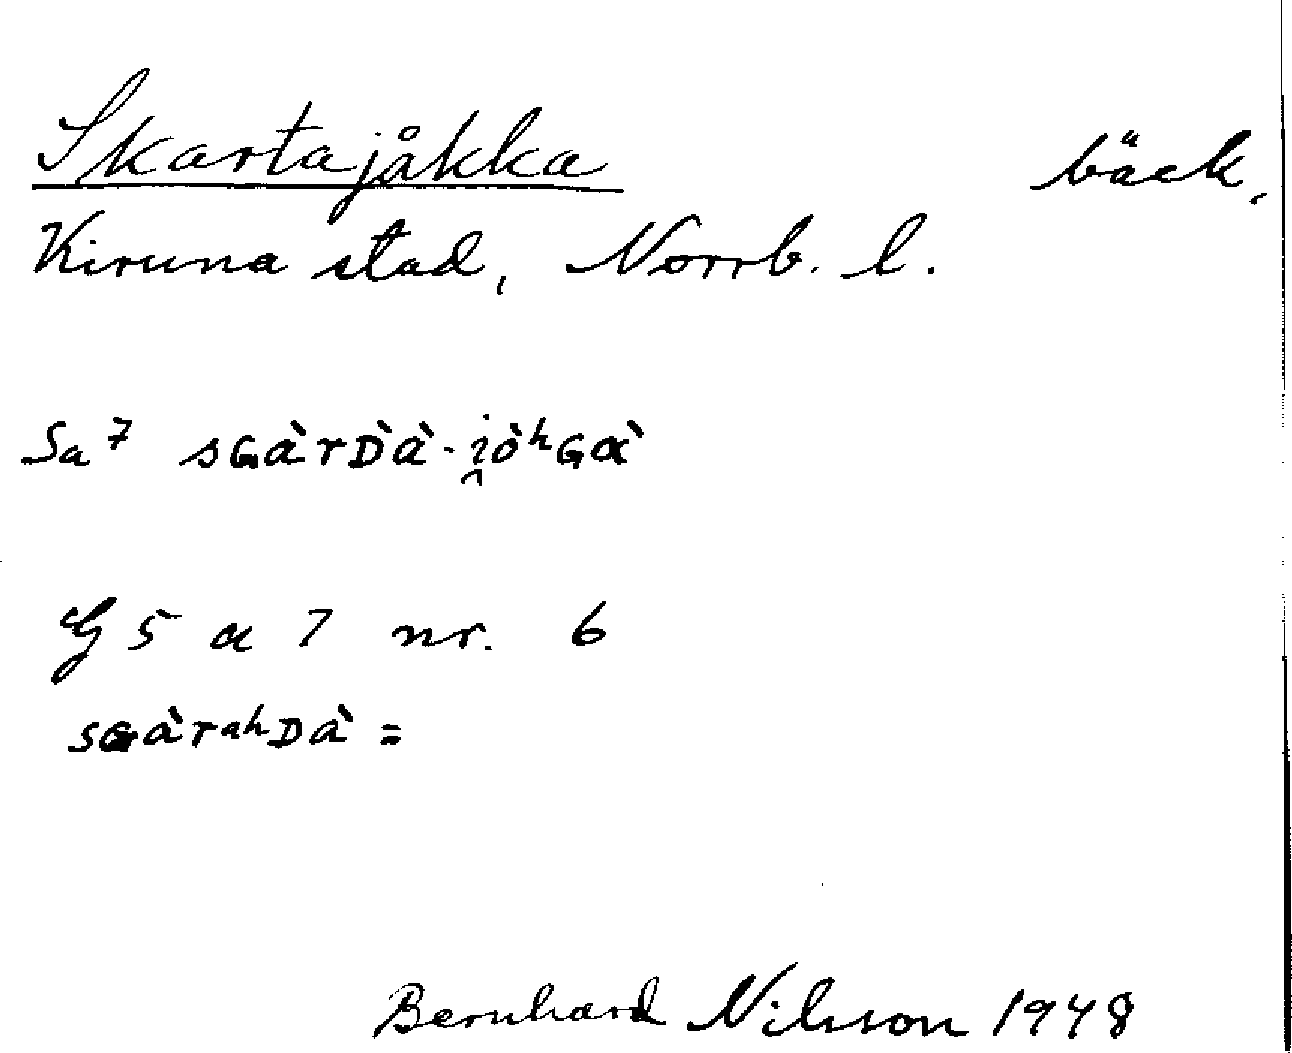 Skartajåkka bäck,
Kiruna stad, Norrb. l.
Sa⁷ sGàrDà-i̯òʰGà
G 5 a 7 nr. 6
sGàrᵃʰDà =
Bernhard Nilsson 1948